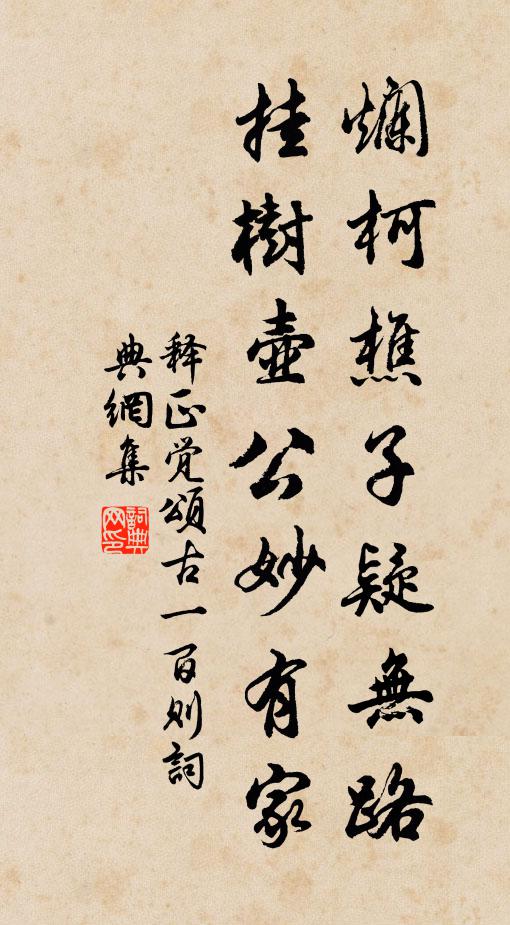 爛柯樵子疑無路
挂樹壺公妙有家
释正觉頌古一百则詞
典網集
詞典
网印